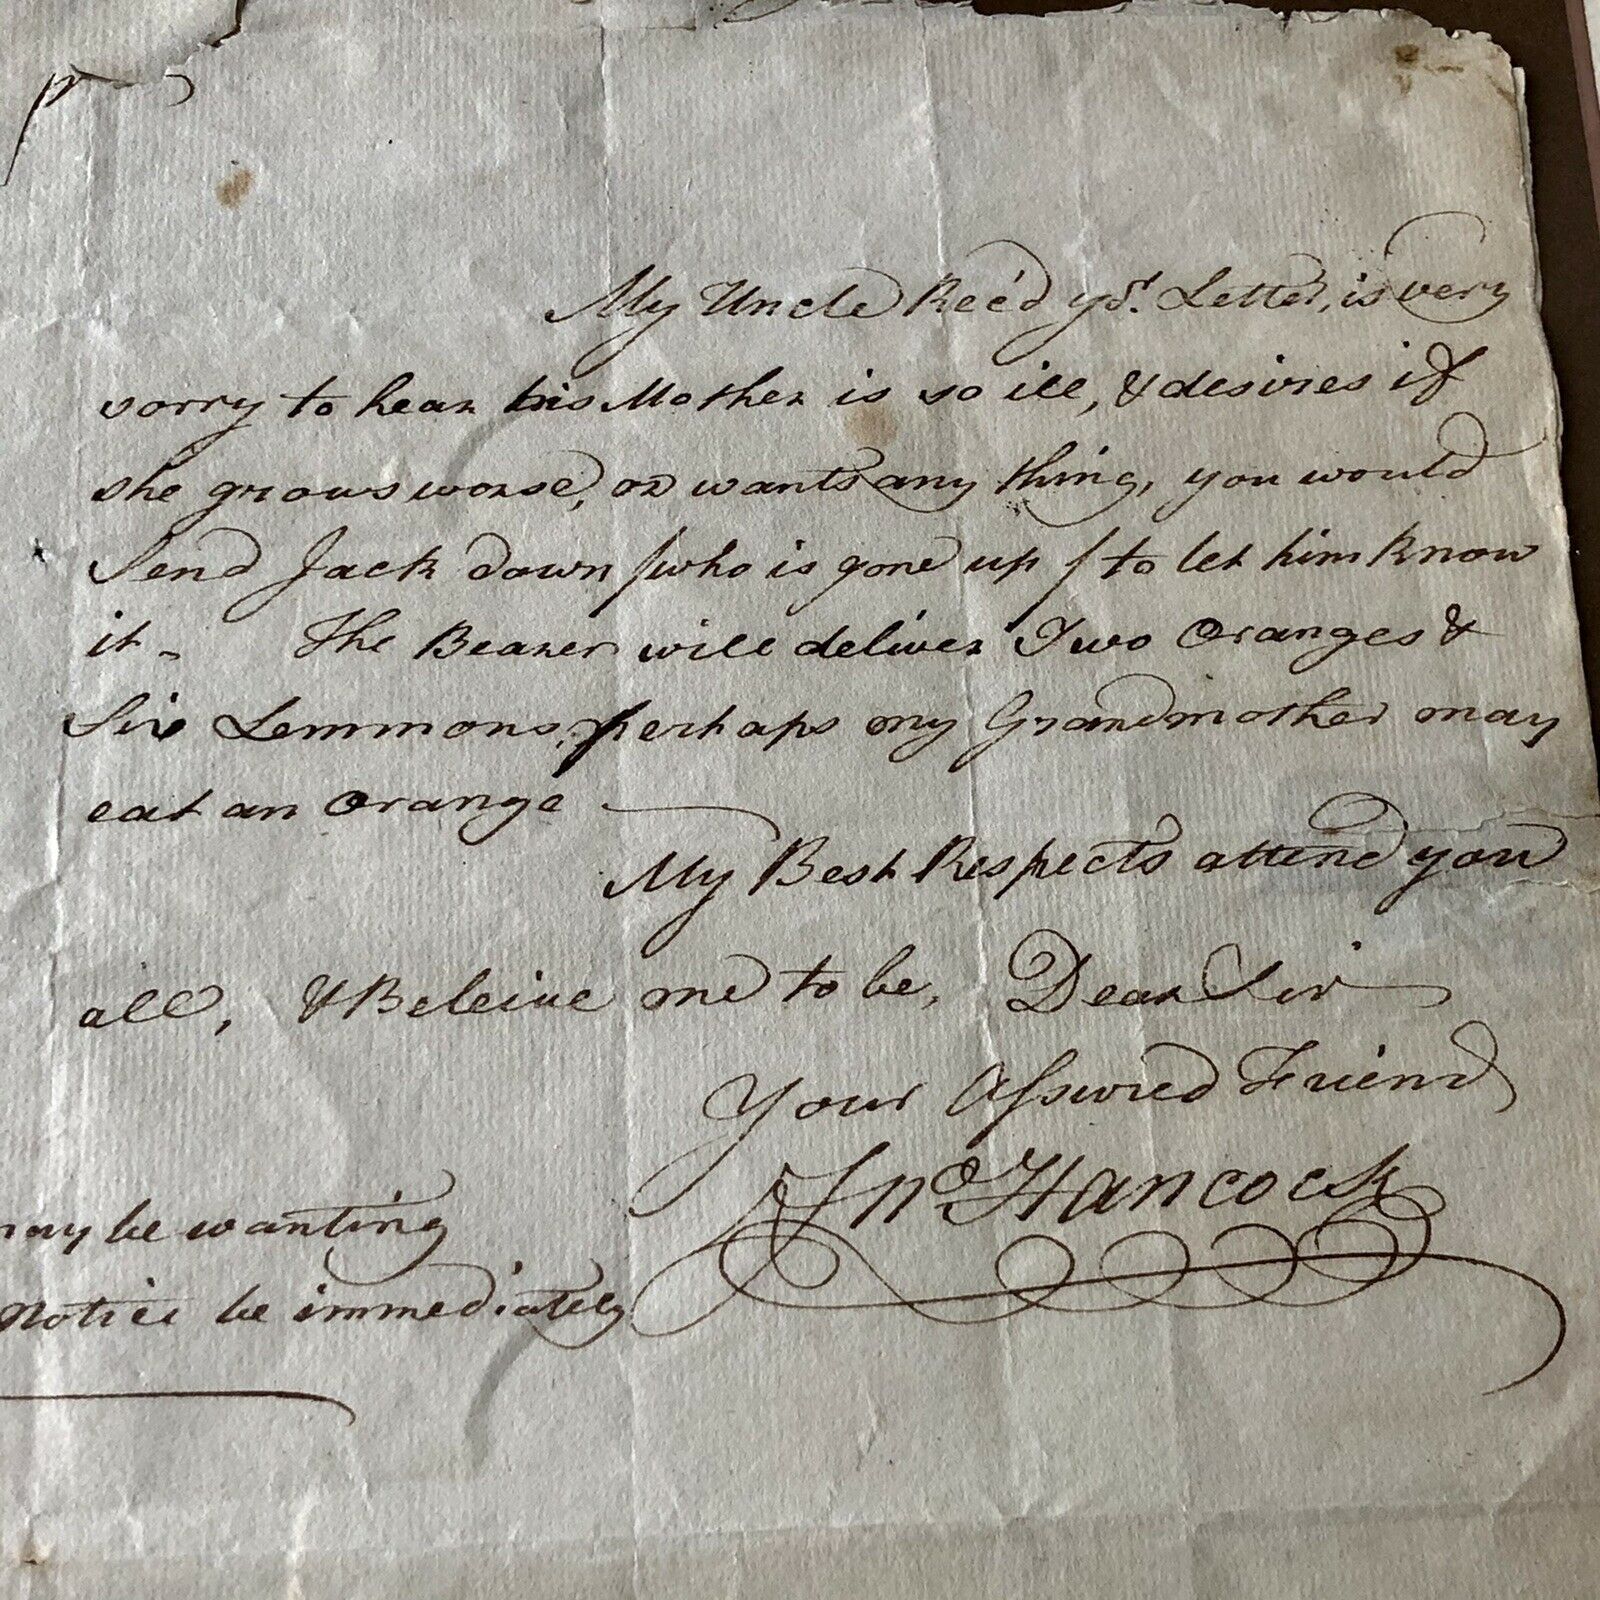 My Uncle Rec'd yr. Letter, is very
sorry to hear his Mother is so ill, & desires if
she grows worse, or wants any thing, you would
Send Jack down /who is gone up/ to let him know
it - The Bearer will deliver Two Oranges &
Six Lemmons, perhaps my Grandmother may
eat an Orange
My Best Respects attend you
all, & Beleive me to be, Dear Sir
Your Assured Friend
Jno Hancock
may be wanting
Notice be immediately